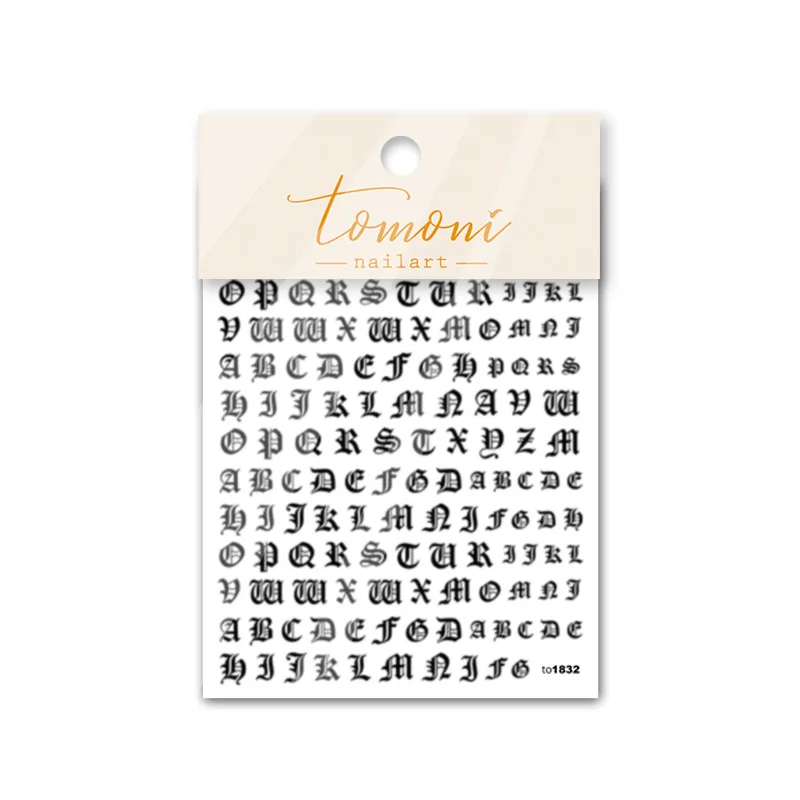 tomoni
nailart
O P Q R S T U R I J K L
V W W X W X M O M N J
A B C D E F G H P Q R S
H I J K L M N A V W
O P Q R S T X Y Z M
A B C D E F G D A B C D E
H I J K L M N J F G D H
O P Q R S T U R I J K L
V W W X W X M O M N J
A B C D E F G D A B C D E
H I J K L M N J F G to1832